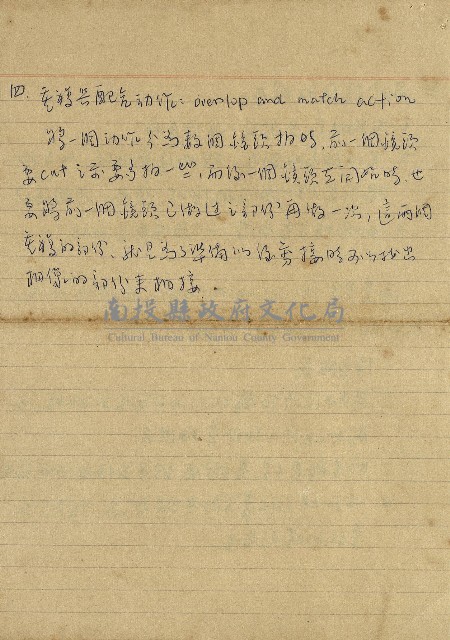 四. 重複與配合动作: overlap and match action
將一個动作分為數個鏡頭拍時，前一個鏡頭
要cut之前要多拍一些，而後一個鏡頭在開始時也
要將前一個鏡頭已做过之部份再做一次，這兩個
重複的部份，就是為了準備以後剪接時可以找出
相像的部份來相接。
南投縣政府文化局
Cultural Bureau of Nantou County Government